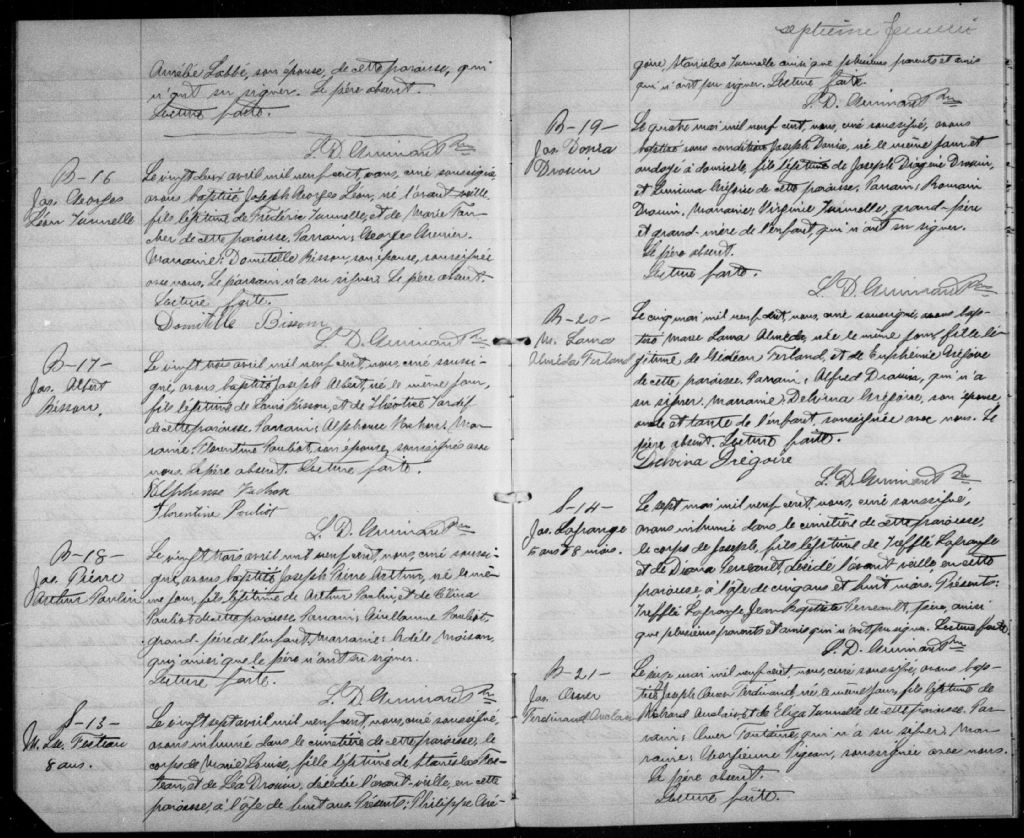 Amélie Labbé, son épouse, de cette paroisse, qui
n'ont su signer. Le père absent.
Lecture faite.
L. D. Guimont Ptre
B-16
Jos. Georges
Léon Turmelle
Le vingt deux avril mil neuf cent, nous, curé soussigné,
avons baptisé Joseph Georges Léon, né l'avant-veille,
fils légitime de Frédéric Turmelle, et de Marie
de cette paroisse. Parrain: Georges Grenier.
Marraine: Domitille Bisson, son épouse, soussignée
avec nous. Le parrain n'a su signer. Le père absent.
Lecture faite.
Domitille Bisson
L. D. Guimont Ptre
B-17-
Jos. Albert
Bisson.
Le vingt trois avril mil neuf cent, nous, curé soussi-
gné, avons baptisé Joseph Albert, né le même jour,
fils légitime de Louis Bisson, et de Tardif
de cette paroisse. Parrain: Alphonse Vachon; Mar-
raine: Florentine Pouliot, son épouse, soussignés avec
nous. Le père absent. Lecture faite.
Alphonse Vachon
Florentine Pouliot
L. D. Guimont Ptre
B-18-
Jos. Pierre
Arthur Poulin
Le vingt trois avril mil neuf cent, nous, curé soussi-
gné, avons baptisé Joseph Pierre Arthur, né le mê-
me jour, fils légitime de Arthur Poulin et de
Pouliot de cette paroisse. Parrain: Guillaume Pouliot,
grand-père de l'enfant. Marraine: Adèle
qui ainsi que le père n'ont su signer.
Lecture faite.
L. D. Guimont Ptre
S-13-
M. Lse
8 ans.
Le vingt sept avril mil neuf cent, nous, curé soussigné,
avons inhumé dans le cimetière de cette paroisse, le
corps de Marie Louise, fille légitime de Stanislas
et de Léa Drouin, décédée l'avant-veille, en cette
paroisse, à l'âge de huit ans. Présents: Philippe Gré-
septième feuillet
goire, Stanislas Turmelle ainsi que plusieurs parents et amis
qui n'ont pu signer. Lecture faite.
L. D. Guimont Ptre
B-19-
Jos.
Drouin
Le quatre mai mil neuf cent, nous, curé soussigné, avons
baptisé sous condition Joseph, né le même jour et
ondoyé à domicile, fils légitime de Joseph Diogène Drouin,
et Grégoire de cette paroisse. Parrain: Romain
Drouin. Marraine: Virginie Turmelle, grand-père
et grand-mère de l'enfant, qui n'ont su signer.
Le père absent.
Lecture faite.
L. D. Guimont Ptre
B-20-
M. Laura
Alméda Ferland
Le cinq mai mil neuf cent, nous, curé soussigné, avons bap-
tisé Marie Laura Alméda, née le même jour, fille lé-
gitime de Gédéon Ferland, et de Euphémie Grégoire
de cette paroisse. Parrain: Alfred Drouin, qui n'a
su signer. Marraine: Delvina Grégoire, son épouse
oncle et tante de l'enfant, soussignée avec nous. Le
père absent. Lecture faite.
Delvina Grégoire
L. D. Guimont Ptre
S-14-
Jos. Lafrange
5 ans & 8 mois.
Le sept mai mil neuf cent, nous, curé soussigné,
avons inhumé dans le cimetière de cette paroisse,
le corps de Joseph, fils légitime de Trefflé
et de Diana Perreault, décédé l'avant veille en cette
paroisse à l'âge de cinq ans et huit mois. Présents:
Trefflé, Jean Baptiste Perreault, père, ainsi
que plusieurs parents et amis qui n'ont pu signer. Lecture faite
L. D. Guimont Ptre
B-21-
Jos. Omer
Ferdinand
Le seize mai mil neuf cent, nous, curé soussigné, avons bap-
tisé Joseph Omer Ferdinand, né le même jour, fils légitime de
et de Eliza Turmelle de cette paroisse. Par-
rain: Omer Fontaine qui n'a su signer. Mar-
raine: Georgienne Pigeon, soussignée avec nous.
Le père absent.
Lecture faite.